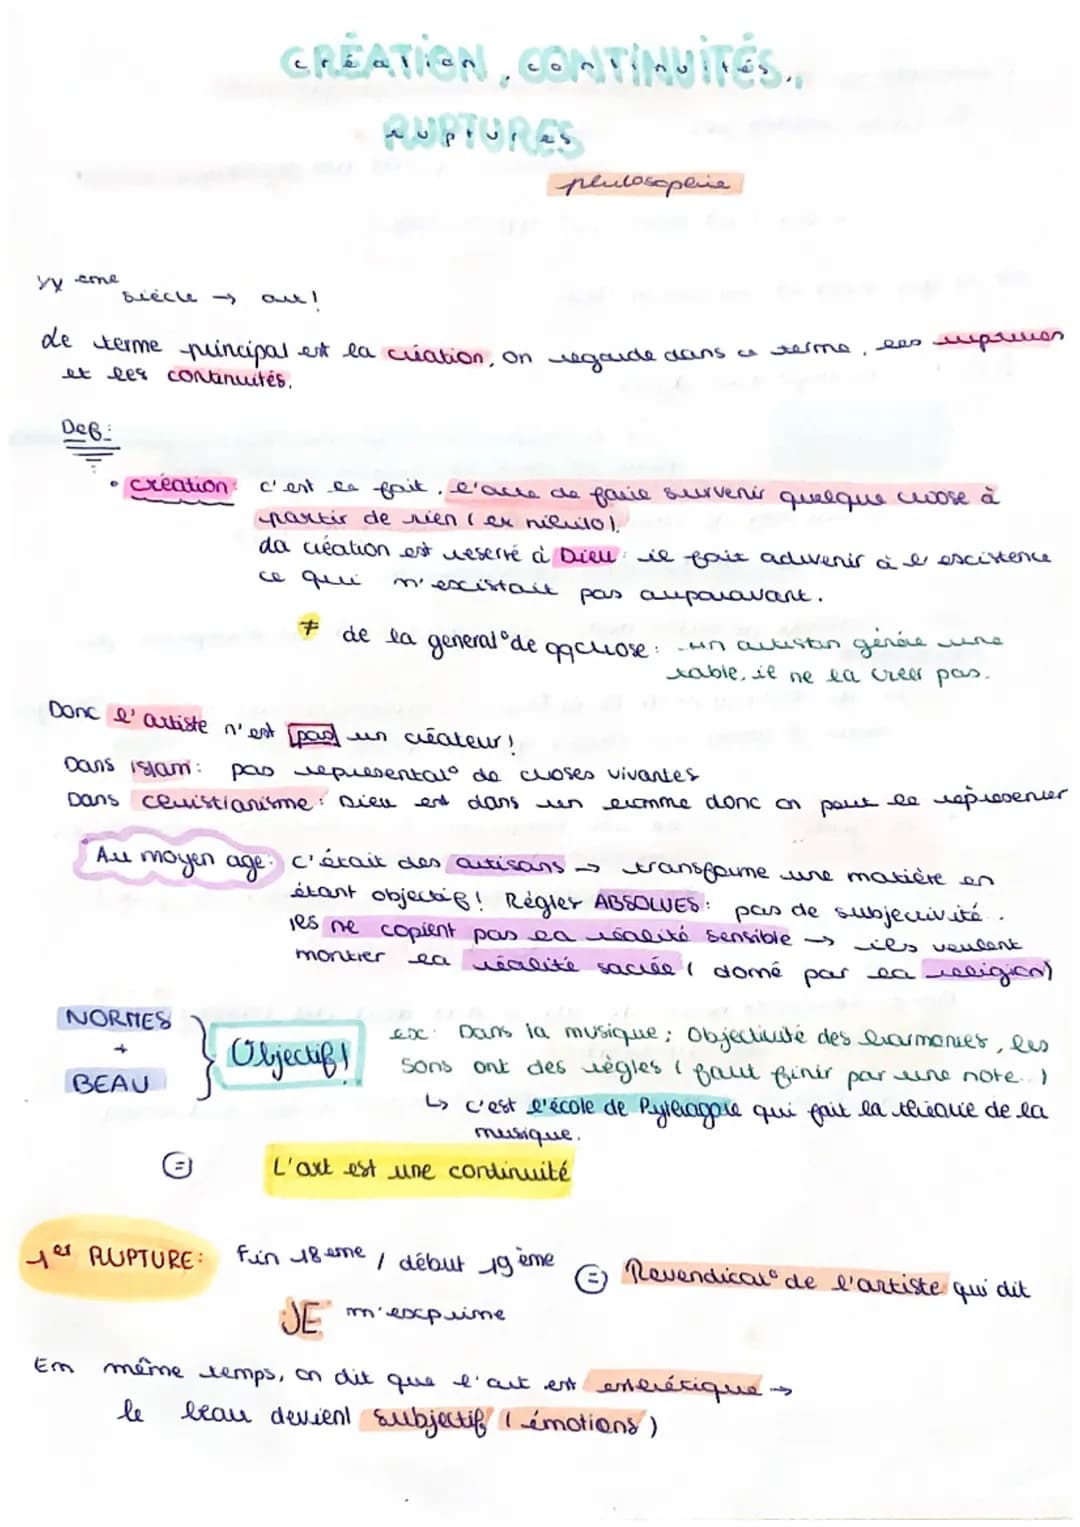 CRÉATION, CONTINUITÉS,
RUPTURES
philosophie
XX ème siècle → art!
Le terme principal est la création, on regarde dans ce terme, les ruptures
et les continuités.
Def:
• création: c'est le fait, l'acte de faire survenir quelque chose à
partir de rien (ex nihilo).
La création est réservé à Dieu: il fait advenir à l'existence
ce qui n'existait pas auparavant.
≠ de la general° de qqchose: un artisan génère une
table, il ne la créer pas.
Donc l'artiste n'est pas un créateur!
Dans islam: pas représentat° de choses vivantes
Dans christianisme: Dieu est dans un homme donc on peut le représenter
Au moyen age: c'était des artisans → transforme une matière en
étant objectif! Règles ABSOLUES: pas de subjectivité.
ils ne copient pas la réalité sensible → ils veulent
montrer la réalité sacrée (donné par la religion)
NORMES
+
BEAU
Objectif!
ex: Dans la musique; Objectivité des harmonies, les
sons ont des règles (faut finir par une note..)
↳ c'est l'école de Pythagore qui fait la théorie de la
musique.
= L'art est une continuité
1er RUPTURE: Fin 18ème / début 19ème = Revendicat° de l'artiste qui dit
JE m'exprime
En même temps, on dit que l'art est esthétique →
le beau devient subjectif (émotions)